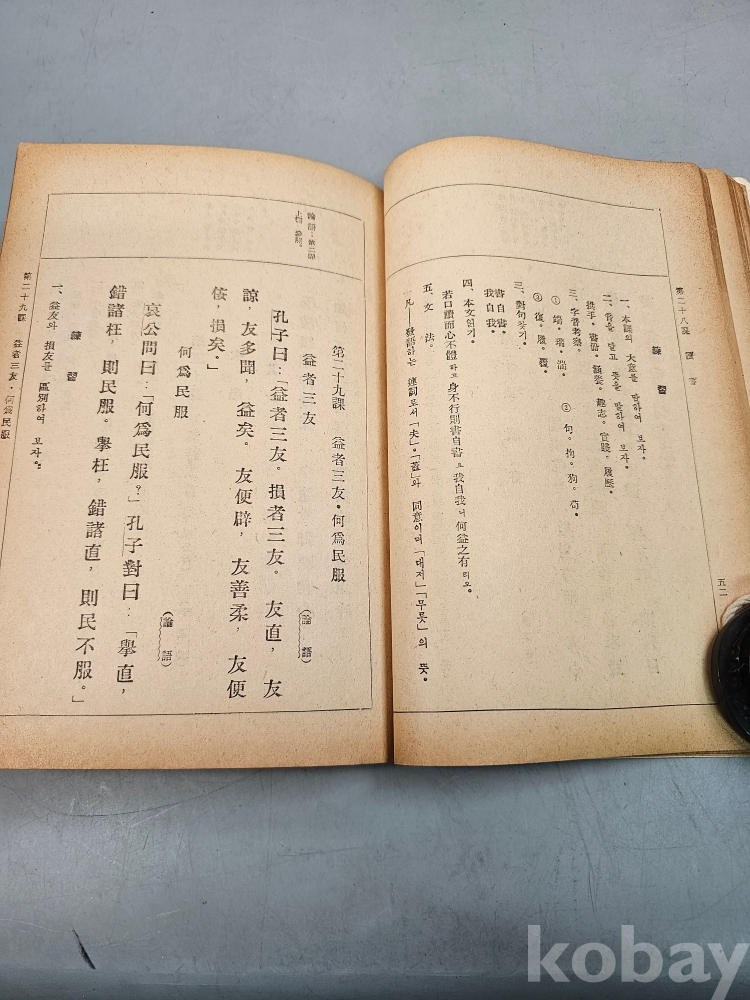 第二十八課 讀書
五二
練習
一、本課의 大意를 말하여 보자。
二、音을 달고 뜻을 말하여 보자。
拱手。書冊。涵養。趣志。實踐。履歷。
三、字音考察。
① 端。瑞。湍。 ② 句。拘。狗。苟。
③ 復。履。覆。
三、對句찾기。
書自書。
我自我。
四、本文읽기。
若口讀而心不體하고 身不行則書自書요 我自我니 何益之有리오。
五、文法。
凡——發語하는 連詞로서「夫」。「蓋」와 同意이며「대저」「무릇」의 뜻。
論語：第二課
上欄 參照。
第二十九課 益者三友・何爲民服
益者三友 (論語)
孔子曰：「益者三友。損者三友。友直，友
諒，友多聞，益矣。友便辟，友善柔，友便
佞，損矣。」
何爲民服 (論語)
哀公問曰：「何爲民服？」孔子對曰：「擧直，
錯諸枉，則民服。擧枉，錯諸直，則民不服。」
練習
一、益友와 損友를 區別하여 보자。
第二十九課 益者三友・何爲民服
kobay